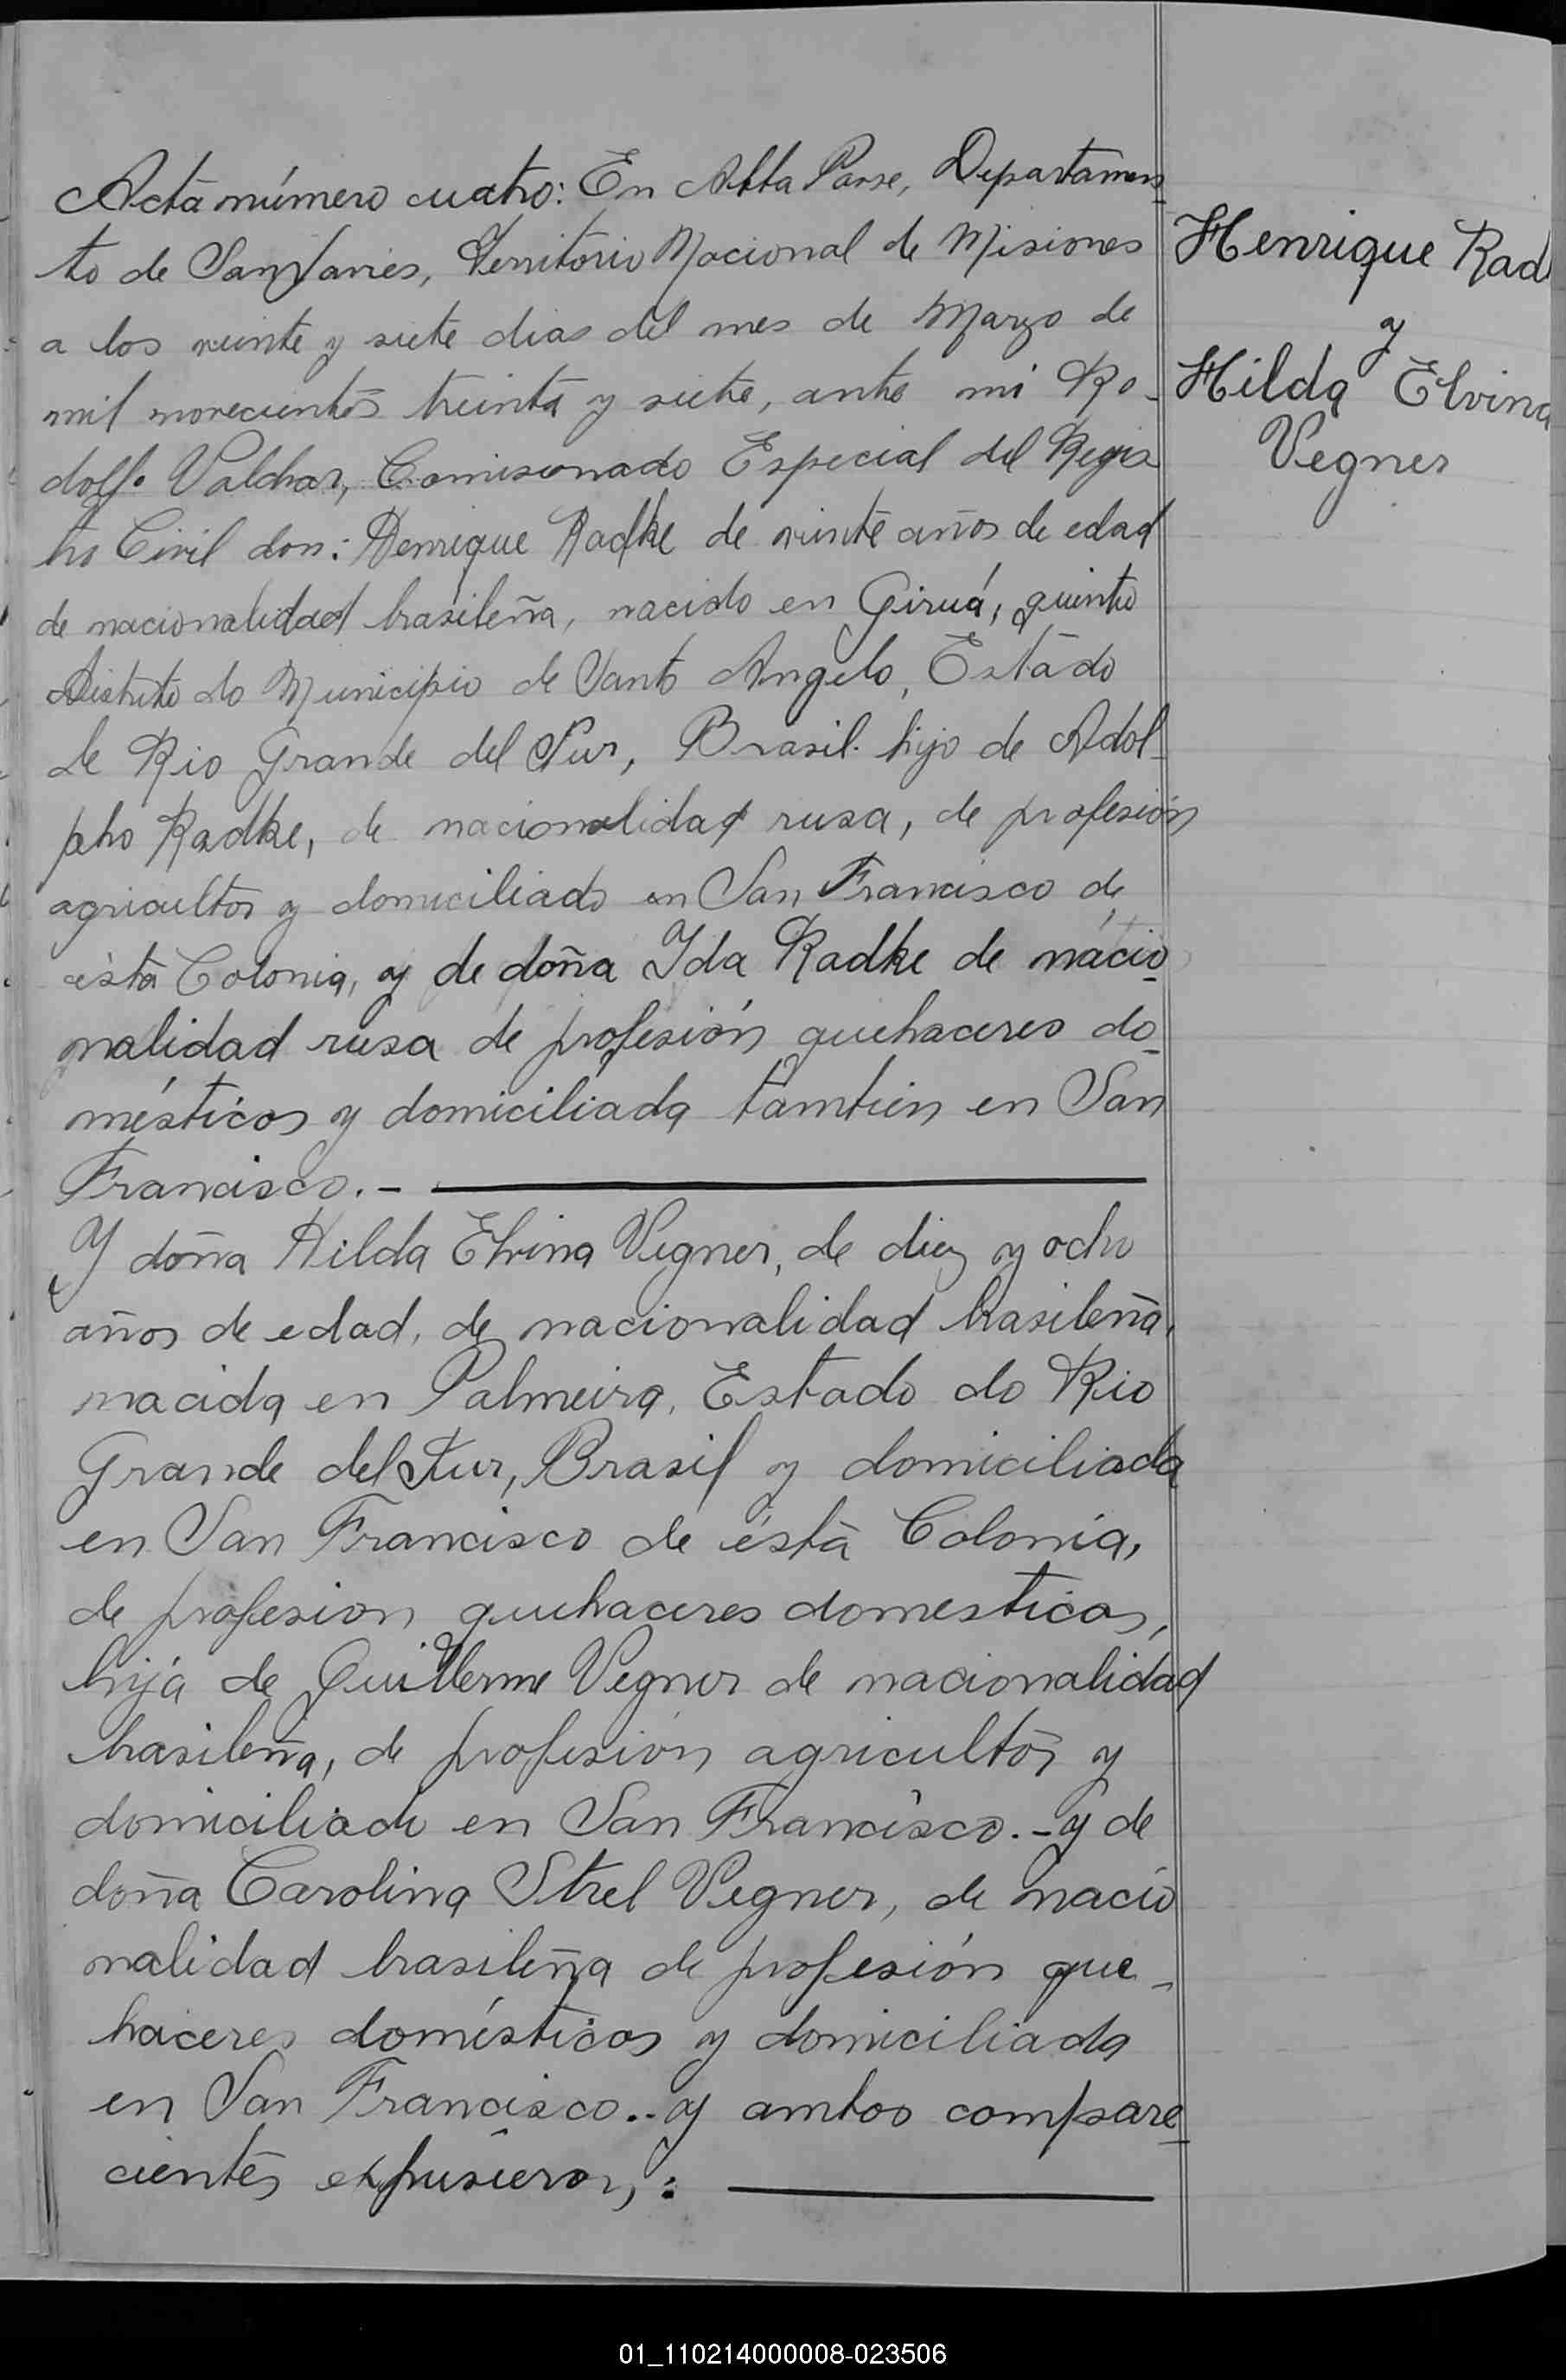 Acta número cuatro: En Alta Parse, Departamen
to de San Javier, Territorio Nacional de Misiones
a los veinte y siete dias del mes de Marzo de
mil novecientos treinta y siete, ante mi Ro-
dolfo Valchar, Comisionado Especial del Regis
tro Civil don: Henrique Radke de veinte años de edad
de nacionalidad brasileña, nacido en Giruá, quinto
Distrito do Municipio de Santo Angelo, Estado
de Rio Grande del Sur, Brasil. hijo de Adol-
pho Radke, de nacionalidad rusa, de profesión
agricultor y domiciliado en San Francisco de
ésta Colonia, y de doña Ida Radke de nacio-
nalidad rusa de profesión quehaceres do-
mésticos y domiciliada tambien en San
Francisco.-
Y doña Hilda Elvina Vegner, de diez y ocho
años de edad, de nacionalidad brasileña,
nacida en Palmeira, Estado do Rio
Grande del Sur, Brasil y domiciliada
en San Francisco de ésta Colonia,
de profesion quehaceres domesticos,
hija de Guillerme Vegner de nacionalidad
brasileña, de profesión agricultor y
domiciliado en San Francisco.- y de
doña Carolina Strel Vegner, de nacio
nalidad brasileña de profesión que-
haceres domésticos y domiciliada
en San Francisco.- y ambos compare-
cientes expusieron,:
Henrique Rad
y
Hilda Elvina
Vegner
01_110214000008-023506